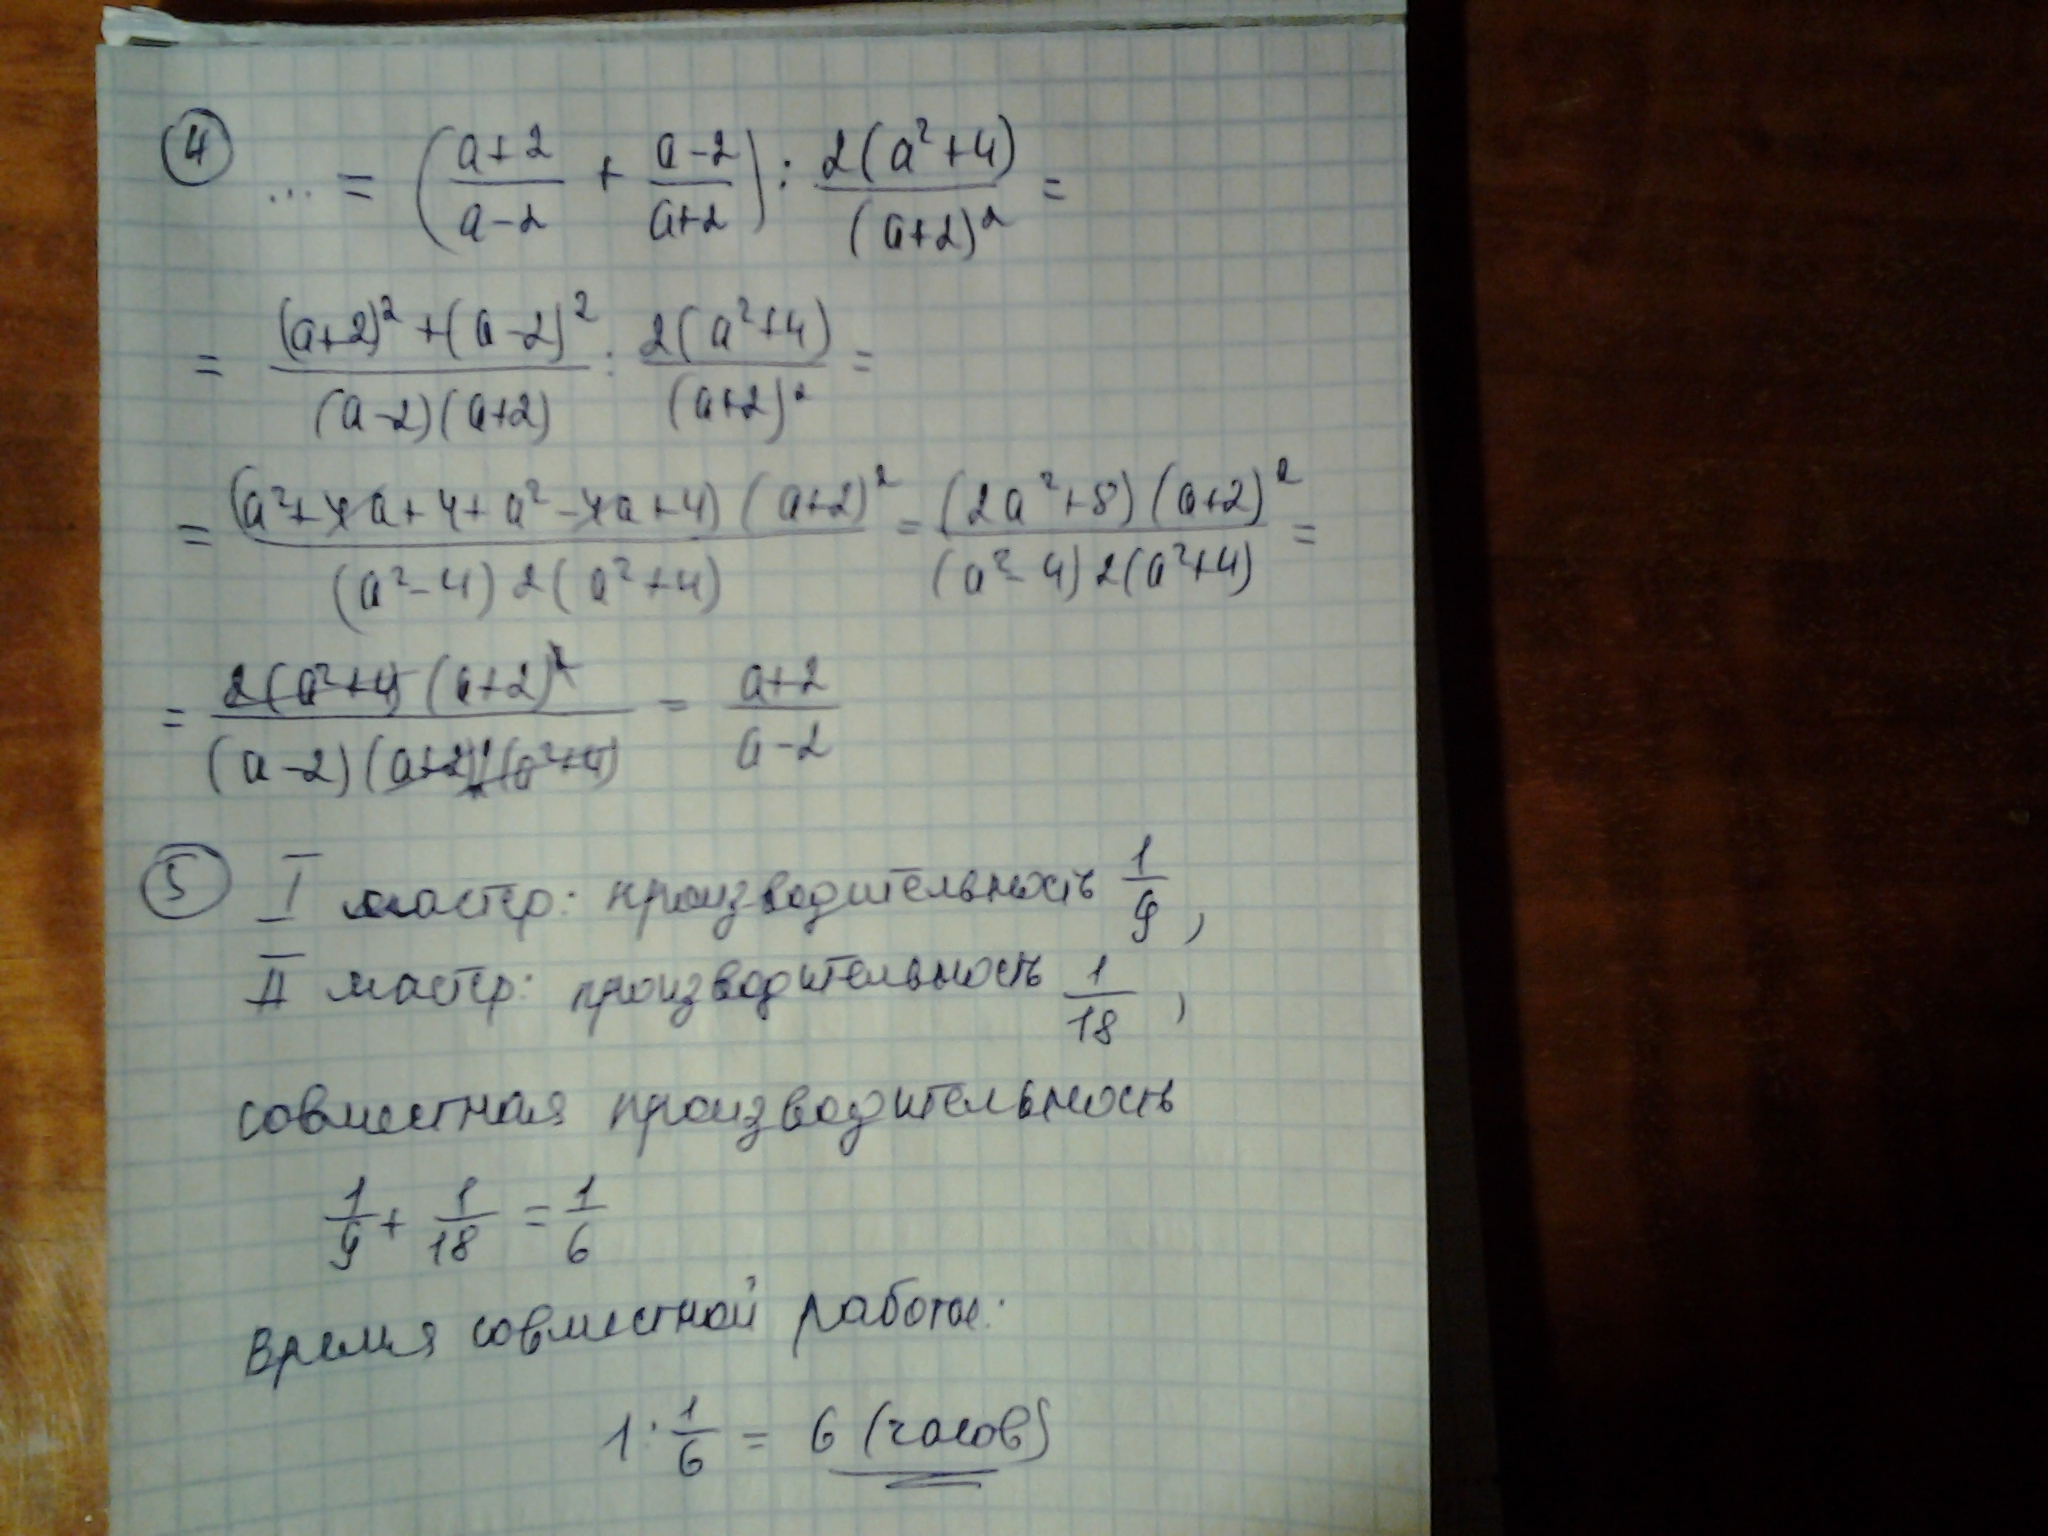 ④ ... = ( (a+2)/(a-2) + (a-2)/(a+2) ) : 2(a²+4)/(a+2)² =
= ((a+2)²+(a-2)²)/((a-2)(a+2)) : 2(a²+4)/(a+2)² =
= (a²+4a+4+a²-4a+4)(a+2)²/((a²-4)2(a²+4)) = (2a²+8)(a+2)²/((a²-4)2(a²+4)) =
= 2(a²+4)(a+2)²/((a-2)(a+2)2(a²+4)) = (a+2)/(a-2)
⑤ I мастер: производительность 1/9,
II мастер: производительность 1/18,
совместная производительность
1/9 + 1/18 = 1/6
Время совместной работы:
1 : 1/6 = 6 (часов)